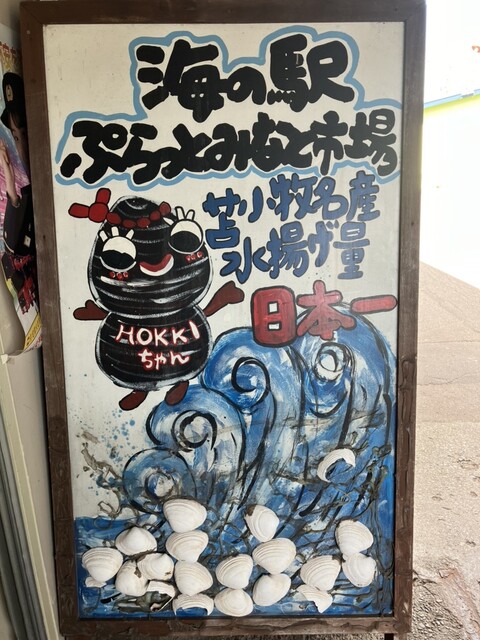 海の駅
ぷらっとみなと市場
苫小牧名産
水揚げ量
日本一
HOKKI
ちゃん